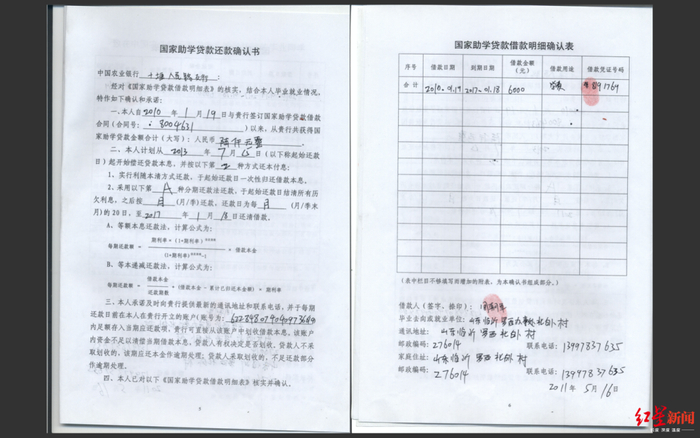 国家助学贷款还款确认书
中国农业银行 十堰人民路支行:
经对《国家助学贷款借款明细表》的核实,结合本人毕业就业情况,
特作如下确认和承诺:
一、本人自2010 年 1 月 19 日与贵行签订国家助学贷款借款
合同(合同号: 8004631 )以来,从贵行共获得国
家助学贷款金额合计(大写):人民币 陆仟元整 。
二、本人计划从 2013 年 7 月 15 日(以下称起始还款
日)起开始偿还贷款本息,并按以下第 2 种方式还本付息:
1、实行利随本清方式还款,于起始还款日一次性归还借款本息。
2、采用以下第 A 种分期还款法还款,于起始还款日结清所有历
欠利息,之后按 月 (月/季)还款,还款日为每 月 (月/季末
月)的20日,至2017 年 1 月 18日还清借款。
A、等额本息还款法,计算公式为:
每期还款额 =
B、等本递减还款法,计算公式为:
每期还款额 = 借款本金 / 还款期数 +(借款本金-累计已归还本金额)× 期利率
三、本人承诺及时向贵行提供最新的通讯地址和联系电话,并于每期
还款日前在本人在贵行开立的账户(账号为:
内足额存入当期应还款项,贵行可直接从该账户中划收借款本息。该账户
内资金不足以清偿当期借款本息,贷款人有权决定是否划收。贷款人不采
取划收的,该期应还本金作逾期处理;贷款人采取划收的,不足还款部分
作逾期处理。
四、本人已对以下《国家助学贷款借款明细表》核实并确认。
国家助学贷款借款明细确认表
序号 借款日期 到期日期 借款金额(元) 借款用途 借款凭证号码
合计 2010.01.19 2017.01.18 6000 891769
(表中栏目不够填写的增加附表,为本确认书组成部分。)
借款人(签字、捺印):
毕业去向或就业单位:山东临沂罗西 村
通讯地址: 山东临沂 罗西 村
邮政编码:276014 联系电话:13997837635
家庭住址:山东临沂 罗西 村
邮政编码:276014 联系电话:13997837635
2011年 5月16日
红星新闻